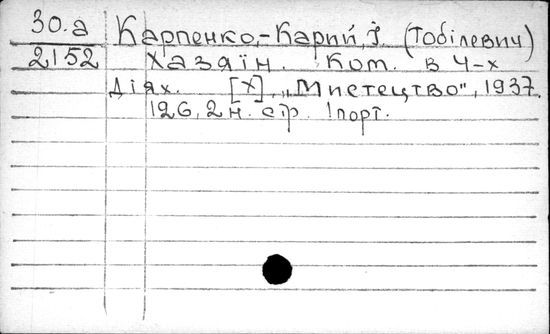 30.а Карпенко-Карий, І. (Тобілевич)
2152 Хазяїн. Ком. в 4-х
діях. [Х], „Мистецтво", 1937.
126, 2 н. стр. 1 порт.